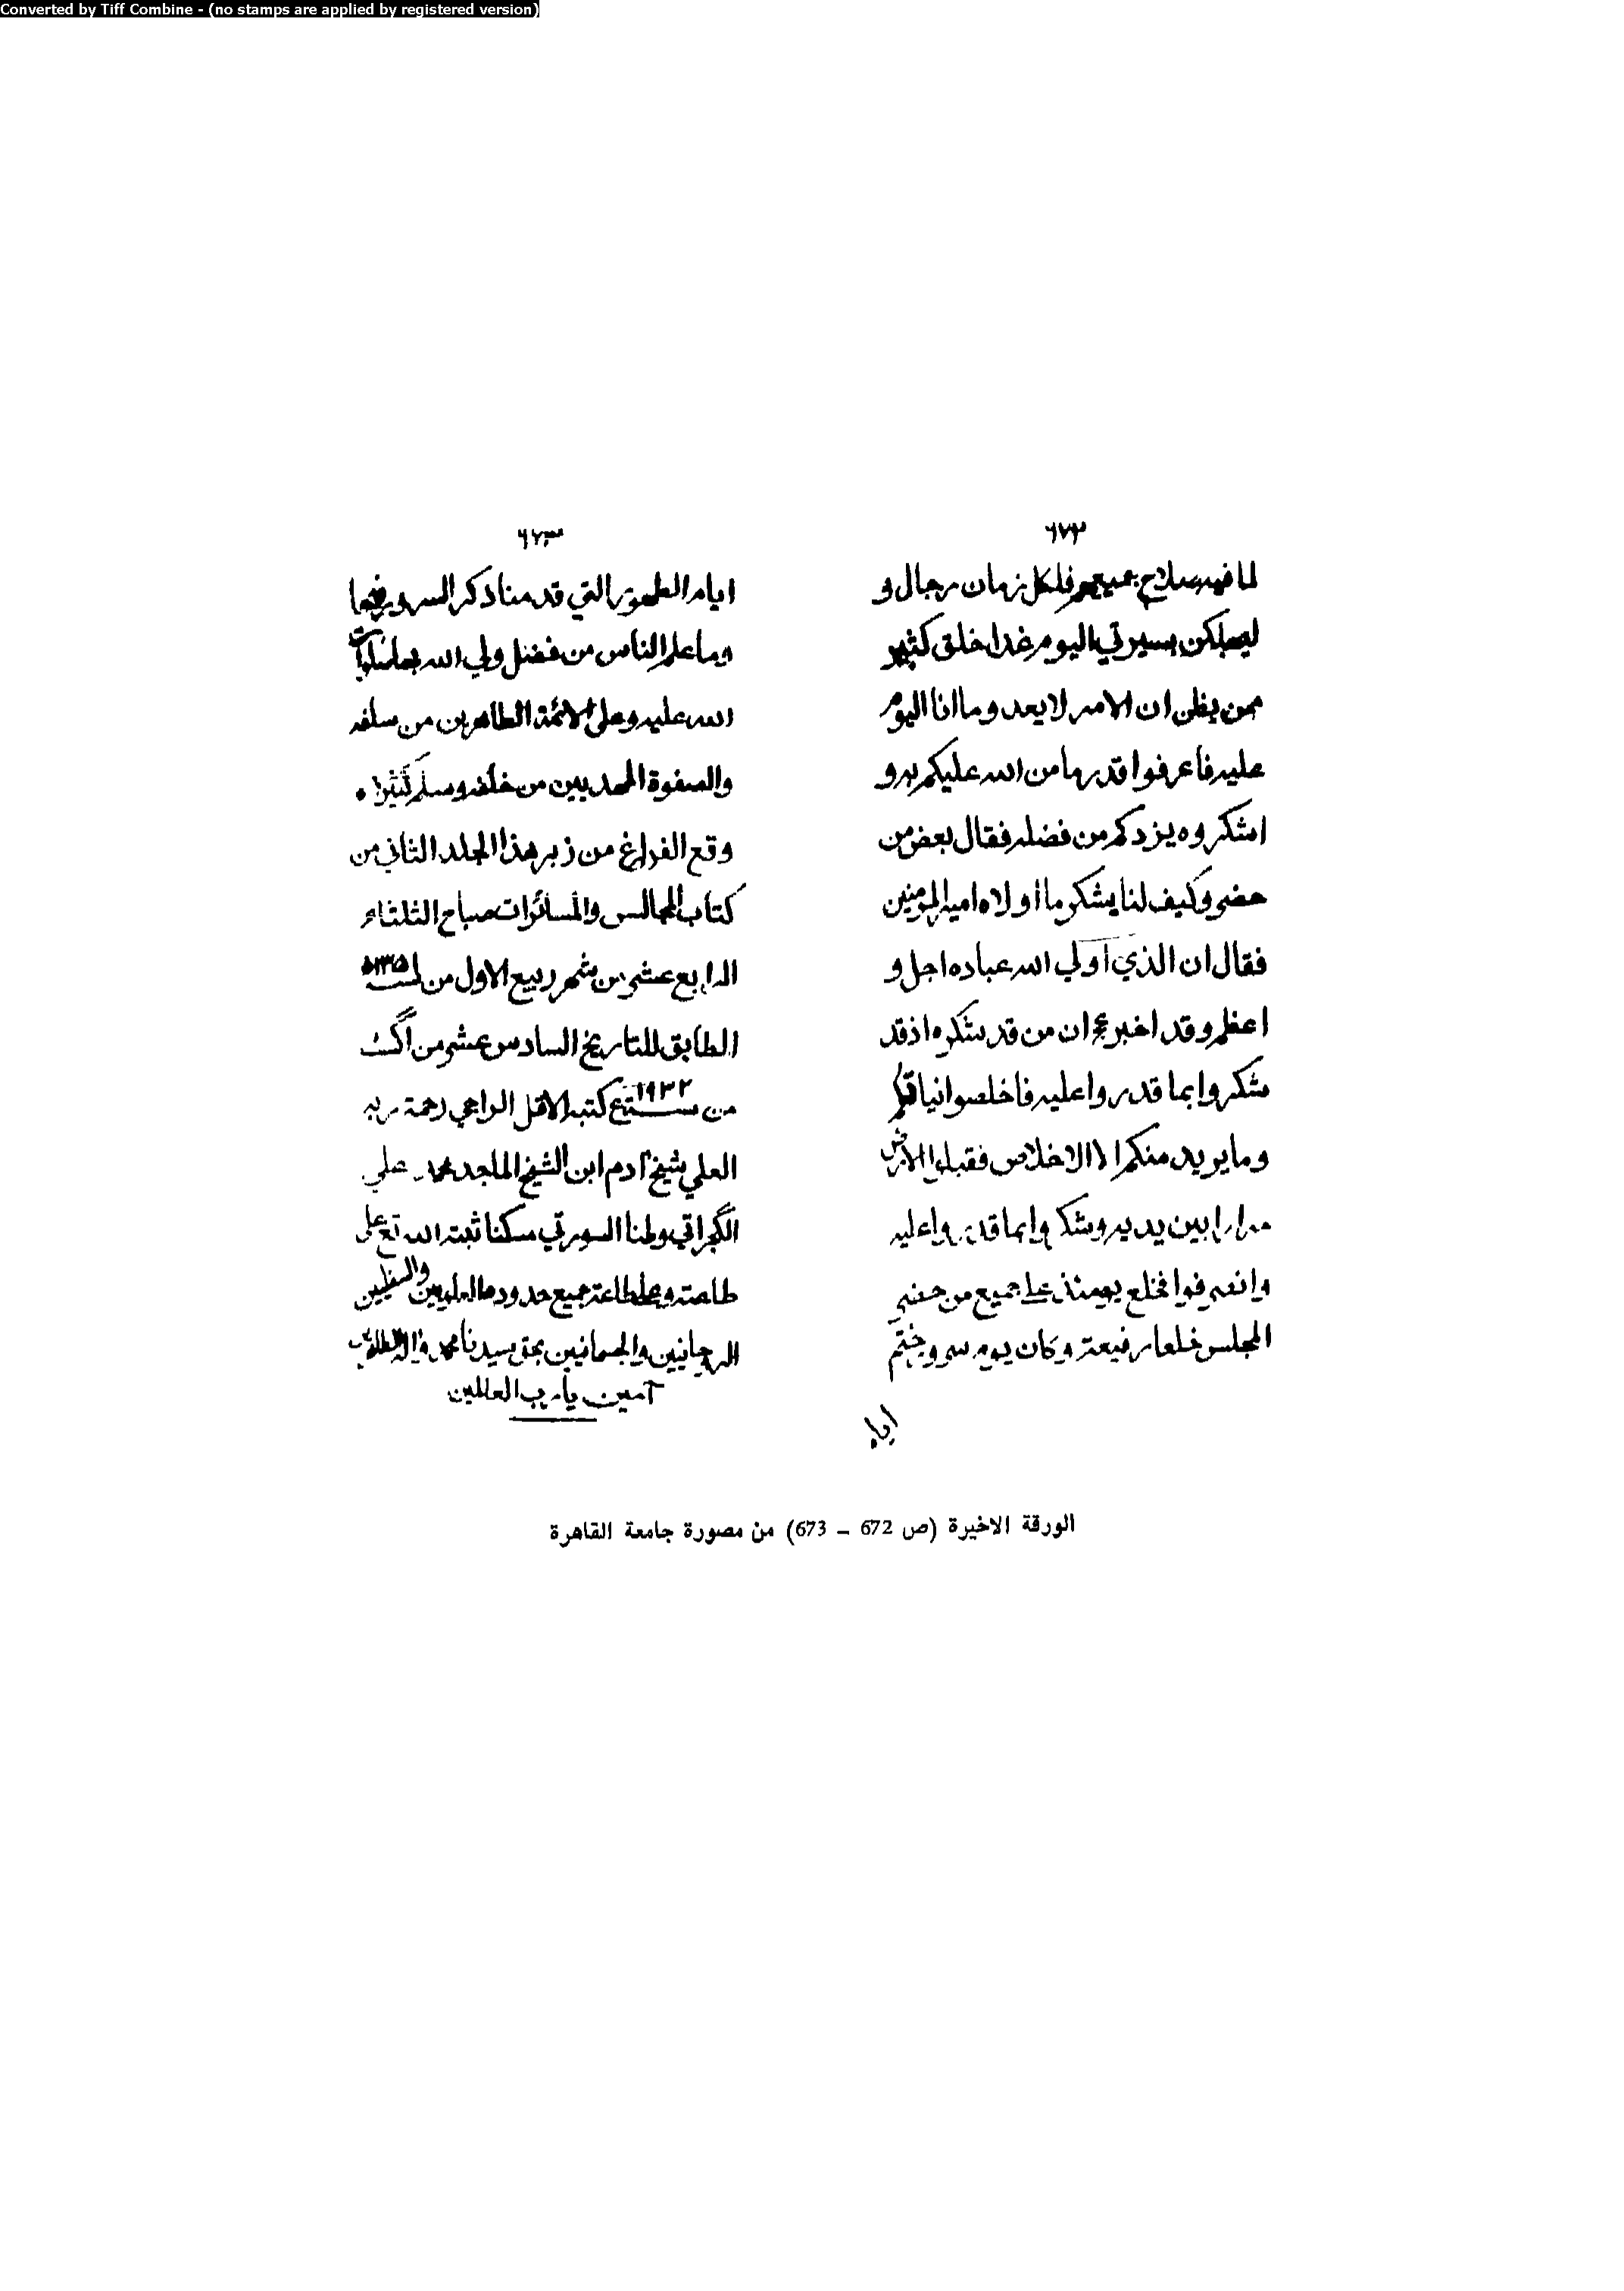 Converted by Tiff Combine - (no stamps are applied by registered version)
٦٧٢
لما فيه صلاح جميعهم فلكل زمان رجال و
ليهلكن بسيرتي اليوم غدا خلق كثير
ممن يظن ان الامر لا يعدو ما انا اليوم
عليه فاعرفوا قدر ما من الله عليكم به و
اشكروه يزدكم من فضله فقال بعض من
حضر وكيف لنا بشكر ما اولاه امير المومنين
فقال ان الذي اولي الله عباده اجل و
اعظم وقد اخبر عج ان من قد شكره اذ قد
شكروا بما قدروا عليه فاخلصوا نياتكم
وما يريد منكم الا الاخلاص فقبلوا الارض
مرارا بين يديه وشكروا بما قدروا عليه
وانصرفوا فخلع يومئذ على جميع من حضر
المجلس خلعا رفيعة وكان يوم سرور ختم
ايام
٦٧٣
ايام الطهور التي قدمنا ذكر السرور فيها
وما علم الناس من فضل ولي الله بها صلوات
الله عليه وعلى الائمة الطاهرين من سلفه
والصفوة المهديين من خلفه وسلم كثيرا ٠
وقع الفراغ من زبر هذا الجلد الثاني من
كتاب المجالس والمسائرات صباح الثلثاء
الرابع عشر من شهر ربيع الاول من
المطابق للتاريخ السادس عشر من اگست
من سنة ١٩٣٢ع كتبه الاقل الراجي رحمة ربه
العلي شيخ آدم ابن الشيخ الماجد محمد علي
الگجراتي وطنا السورتي مسكنا ثبته الله تع على
طاعته وعلى طاعة جميع حدودها العلويين والسفليين
الروحانيين والجسمانيين بحق سيدنا محمد وآله
آمين يا رب العالمين
الورقة الاخيرة (ص 672 – 673) من مصورة جامعة القاهرة